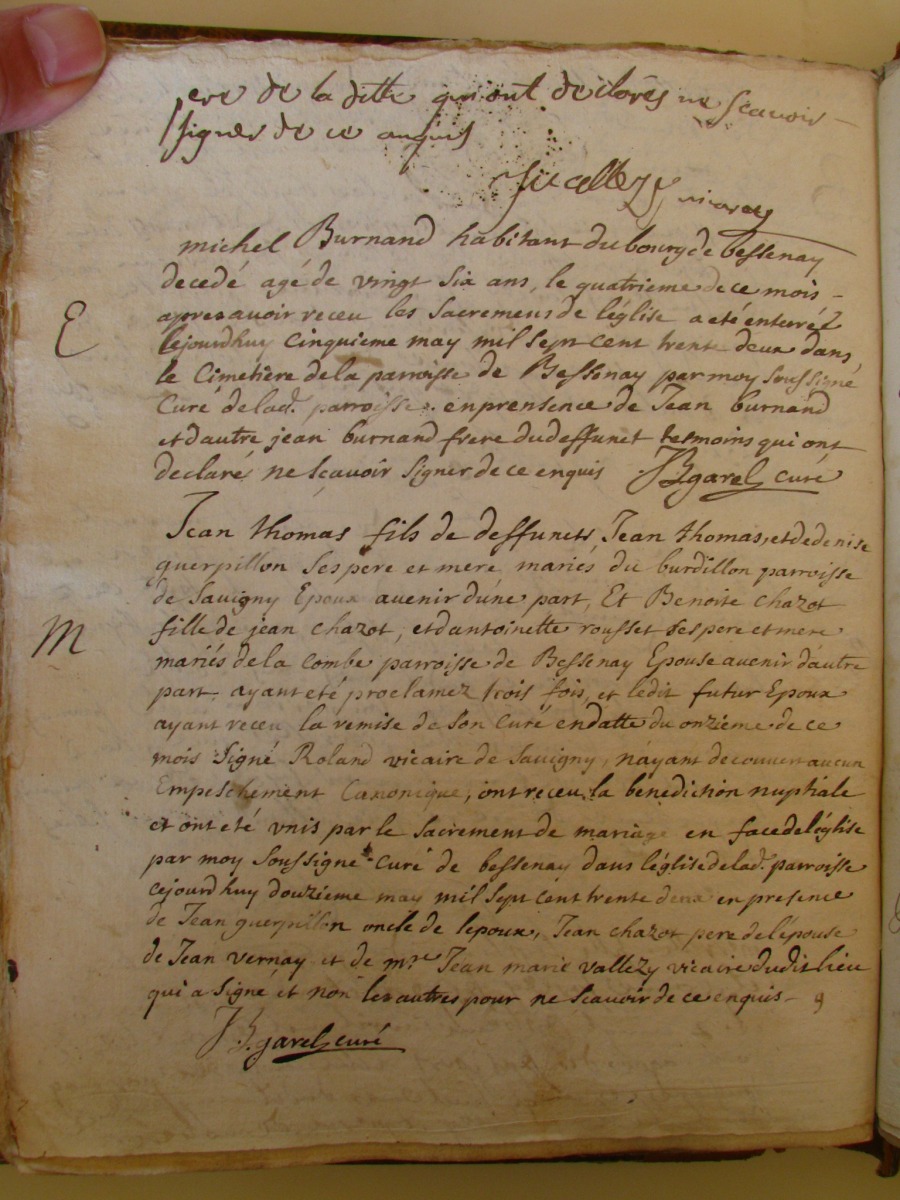 pere de la ditte qui ont declorés ne scavoir
signer de ce anquis
vallezy vicaire
michel Burnand habitant du bourg de bessenay
decedé agé de vingt six ans, le quatrieme de ce mois
apres avoir receu les sacremens de léglise a eté enterréz
E
cejourdhuy cinquieme may mil sept cent trente deux dans
le Cimetière de la parroisse de Bessenay par moy soussigné
Curé de lad. parroisse. en prensence de Jean burnand
et dautre jean burnand frere du deffunct tesmoins qui ont
declaré ne scavoir signer de ce enquis JB garel curé
Jean thomas fils de deffuncts Jean thomas, et de denise
guerpillon ses pere et mere mariés du burdillon parroisse
de Savigny Epoux avenir d'une part, Et Benoite chazot
M
fille de jean chazot, et dantoinette rousset ses pere et mere
mariés de la combe parroisse de Bessenay Epouse avenir dautre
part, ayant eté proclamez trois fois, et ledit futur Epoux
ayant receu la remise de son Curé en datte du onzieme de ce
mois signé Roland vicaire de Savigny, n'ayant decouvert aucun
Empeschement Canonique, ont receu la benediction nuptiale
et ont eté vnis par le sacrement de mariage en face de léglise
par moy soussigné Curé de bessenay dans léglise de lad. parroisse
cejourdhuy douzieme may mil sept cent trente deux en presence
de Jean guerpillon oncle de lepoux, Jean chazot pere de lépouse
de Jean vernay et de mre Jean marie vallezy vicaire dudit lieu
qui a signé et non les autres pour ne scavoir de ce enquis
JB. garel curé